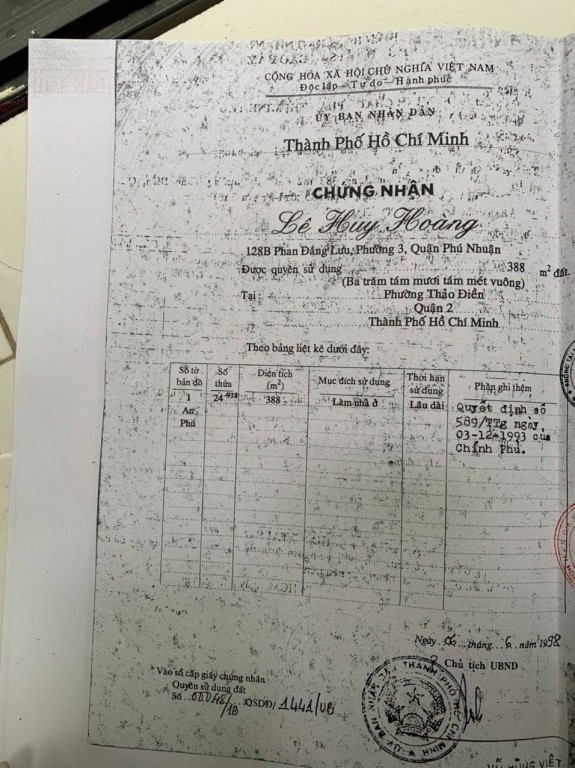 CỘNG HÒA XÃ HỘI CHỦ NGHĨA VIỆT NAM
Độc lập - Tự do - Hạnh phúc
ỦY BAN NHÂN DÂN
Thành Phố Hồ Chí Minh
CHỨNG NHẬN
Lê Huy Hoàng
128B Phan Đăng Lưu, Phường 3, Quận Phú Nhuận
Được quyền sử dụng 388 m² đất.
(Ba trăm tám mươi tám mét vuông)
Tại : Phường Thảo Điền
Quận 2
Thành Phố Hồ Chí Minh
Theo bảng liệt kê dưới đây:
Số tờ bản đồ Số thửa Diện tích (m²) Mục đích sử dụng Thời hạn sử dụng Phần ghi thêm
1 24-938 388 Làm nhà ở Lâu dài Quyết định số
An 589/TTg ngày,
Phú 03-12-1993 của
Chính Phủ.
Ngày 06 tháng 6 năm 1998
Chủ tịch UBND
Vào sổ cấp giấy chứng nhận
Quyền sử dụng đất
Số QSDĐ/ 1441/UB
ỦY BAN NHÂN DÂN THÀNH PHỐ HỒ CHÍ MINH
VÕ HÙNG VIỆT